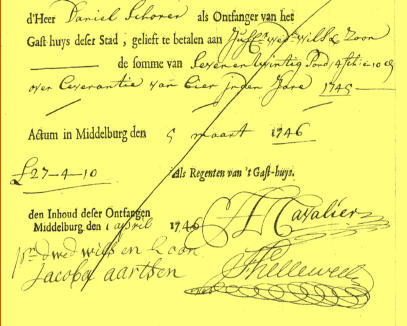 d'Heer Daniel Schorer als Ontfanger van het
Gast-huys deser Stad, gelieft te betalen aan Juffr. wed. Wils & Zoon
de somme van Seven en twintig Pond, 4 sch: & 10 g
over Leverantie van bier in den Jare 1745
Actum in Middelburg den 5 maart 1746
£27-4-10
Als Regenten van 't Gast-huys.
den Inhoud deser Ontfangen
Middelburg den 1 april 1746
J Cavalier
pr. d wed wils en Zoon
Jacoba aartsen